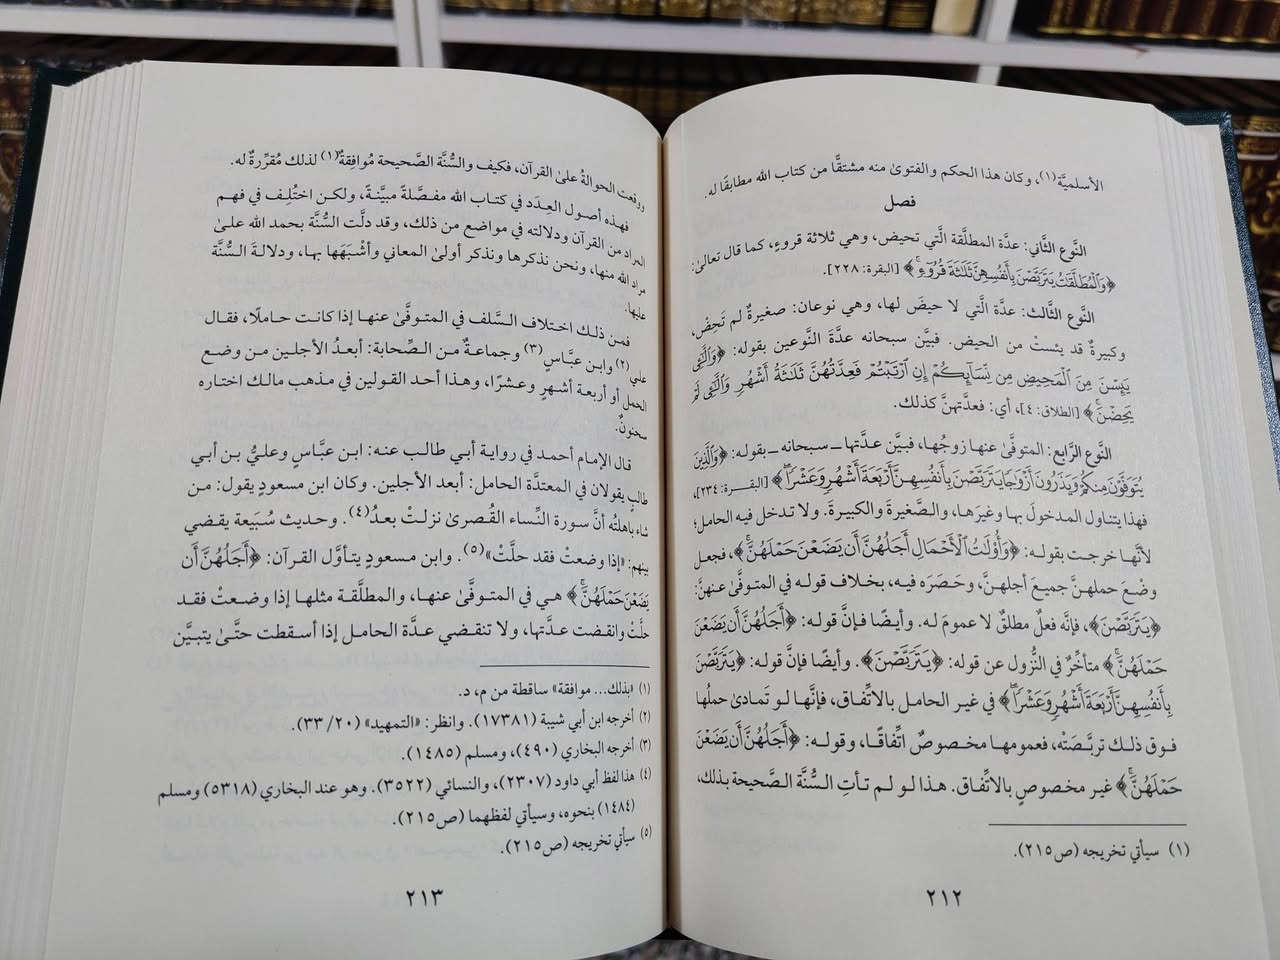 الأسلميَّة(١)، وكان هذا الحكم والفتوىٰ منه مشتقًّا من كتاب الله مطابقًا له.
فصل
النَّوع الثَّاني: عدَّة المطلَّقة الَّتي تحيض، وهي ثلاثة قروءٍ، كما قال تعالىٰ:
﴿وَٱلْمُطَلَّقَٰتُ يَتَرَبَّصْنَ بِأَنفُسِهِنَّ ثَلَٰثَةَ قُرُوٓءٍ﴾ [البقرة: ٢٢٨].
النَّوع الثَّالث: عدَّة الَّتي لا حيضَ لها، وهي نوعان: صغيرةٌ لم تَحِضْ،
وكبيرةٌ قد يئستْ من الحيض. فبيَّن سبحانه عدَّةَ النَّوعين بقوله: ﴿وَٱلَّٰٓـِٔي
يَئِسْنَ مِنَ ٱلْمَحِيضِ مِن نِّسَآئِكُمْ إِنِ ٱرْتَبْتُمْ فَعِدَّتُهُنَّ ثَلَٰثَةُ أَشْهُرٍ وَٱلَّٰٓـِٔي لَمْ
يَحِضْنَ﴾ [الطلاق: ٤]، أي: فعدَّتهنَّ كذلك.
النَّوع الرَّابع: المتوفَّىٰ عنها زوجُها، فبيَّن عدَّتها ــ سبحانه ــ بقوله: ﴿وَٱلَّذِينَ
يُتَوَفَّوْنَ مِنكُمْ وَيَذَرُونَ أَزْوَٰجًا يَتَرَبَّصْنَ بِأَنفُسِهِنَّ أَرْبَعَةَ أَشْهُرٍ وَعَشْرًا﴾ [البقرة: ٢٣٤]،
فهذا يتناول المدخولَ بها وغيرَها، والصَّغيرةَ والكبيرةَ. ولا تدخل فيه الحامل؛
لأنَّها خرجت بقوله: ﴿وَأُوْلَٰتُ ٱلْأَحْمَالِ أَجَلُهُنَّ أَن يَضَعْنَ حَمْلَهُنَّ﴾، فجعل
وضْعَ حملهنَّ جميعَ أجلهنَّ، وحَصَره فيه، بخلاف قوله في المتوفَّىٰ عنهنَّ:
﴿يَتَرَبَّصْنَ﴾، فإنَّه فعلٌ مطلقٌ لا عمومَ له. وأيضًا فإنَّ قوله: ﴿أَجَلُهُنَّ أَن يَضَعْنَ
حَمْلَهُنَّ﴾ متأخِّرٌ في النُّزول عن قوله: ﴿يَتَرَبَّصْنَ﴾. وأيضًا فإنَّ قوله: ﴿يَتَرَبَّصْنَ
بِأَنفُسِهِنَّ أَرْبَعَةَ أَشْهُرٍ وَعَشْرًا﴾ في غير الحامل بالاتِّفاق، فإنَّها لو تَمادىٰ حملُها
فوق ذلك تربَّصَتْه، فعمومها مخصوصٌ اتِّفاقًا، وقوله: ﴿أَجَلُهُنَّ أَن يَضَعْنَ
حَمْلَهُنَّ﴾ غير مخصوصٍ بالاتِّفاق. هذا لو لم تأتِ السُّنَّة الصَّحيحة بذلك،
(١) سيأتي تخريجه (ص٢١٥).
٢١٢
ووقعت الحوالةُ علىٰ القرآن، فكيف والسُّنَّة الصَّحيحة مُوافِقةٌ(١) لذلك مُقرِّرةٌ له.
فهذه أصول العِدَد في كتاب الله مفصَّلةً مبيَّنةً، ولكن اختُلِف في فهم
المراد من القرآن ودلالته في مواضع من ذلك، وقد دلَّت السُّنَّة بحمد الله علىٰ
مراد الله منها، ونحن نذكرها ونذكر أولىٰ المعاني وأشْبَهَها بها، ودلالةَ السُّنَّة
عليها.
فمن ذلك اختلاف السَّلف في المتوفَّىٰ عنها إذا كانت حاملًا، فقال
علي(٢) وابن عبَّاسٍ(٣) وجماعةٌ من الصَّحابة: أبعدُ الأجلين من وضع
الحمل أو أربعة أشهرٍ وعشرًا، وهذا أحد القولين في مذهب مالك اختاره
سحنونٌ.
قال الإمام أحمد في رواية أبي طالب عنه: ابن عبَّاسٍ وعليُّ بن أبي
طالبٍ يقولان في المعتدَّة الحامل: أبعد الأجلين. وكان ابن مسعودٍ يقول: من
شاء باهلتُه أنَّ سورة النِّساء القُصرىٰ نزلتْ بعدُ(٤). وحديث سُبَيعة يقضي
بينهم: «إذا وضعتْ فقد حلَّتْ»(٥). وابن مسعودٍ يتأوَّل القرآن: ﴿أَجَلُهُنَّ أَن
يَضَعْنَ حَمْلَهُنَّ﴾ هي في المتوفَّىٰ عنها، والمطلَّقة مثلها إذا وضعتْ فقد
حلَّتْ وانقضت عدَّتها، ولا تنقضي عدَّة الحامل إذا أسقطت حتَّىٰ يتبيَّن
(١) «بذلك... موافقة» ساقطة من م، د.
(٢) أخرجه ابن أبي شيبة (١٧٣٨١). وانظر: «التمهيد» (٢٠/ ٣٣).
(٣) أخرجه البخاري (٤٩٠)، ومسلم (١٤٨٥).
(٤) هذا لفظ أبي داود (٢٣٠٧)، والنسائي (٣٥٢٢). وهو عند البخاري (٥٣١٨) ومسلم
(١٤٨٤) بنحوه، وسيأتي لفظهما (ص٢١٥).
(٥) سيأتي تخريجه (ص٢١٥).
٢١٣